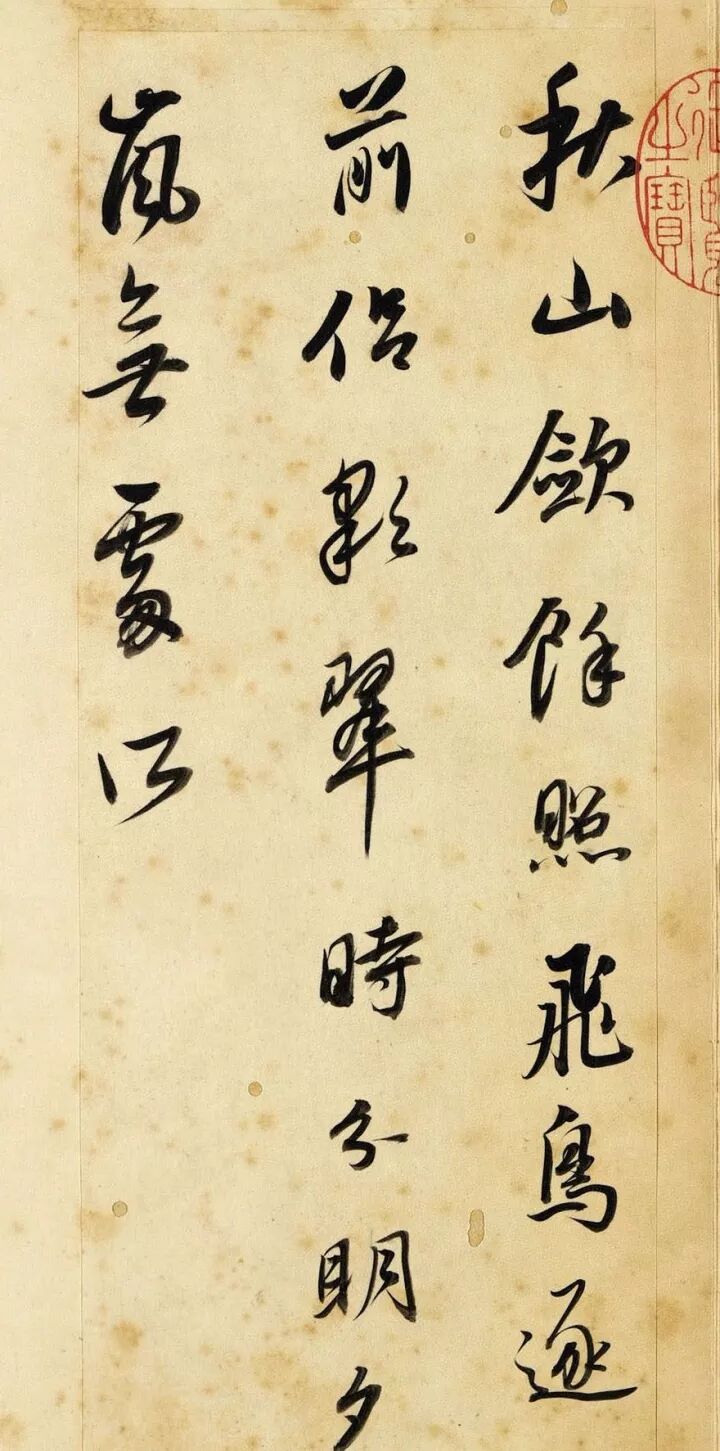 秋山歛餘照飛鳥逐
前侶彩翠時分明夕
嵐無處所
之寶